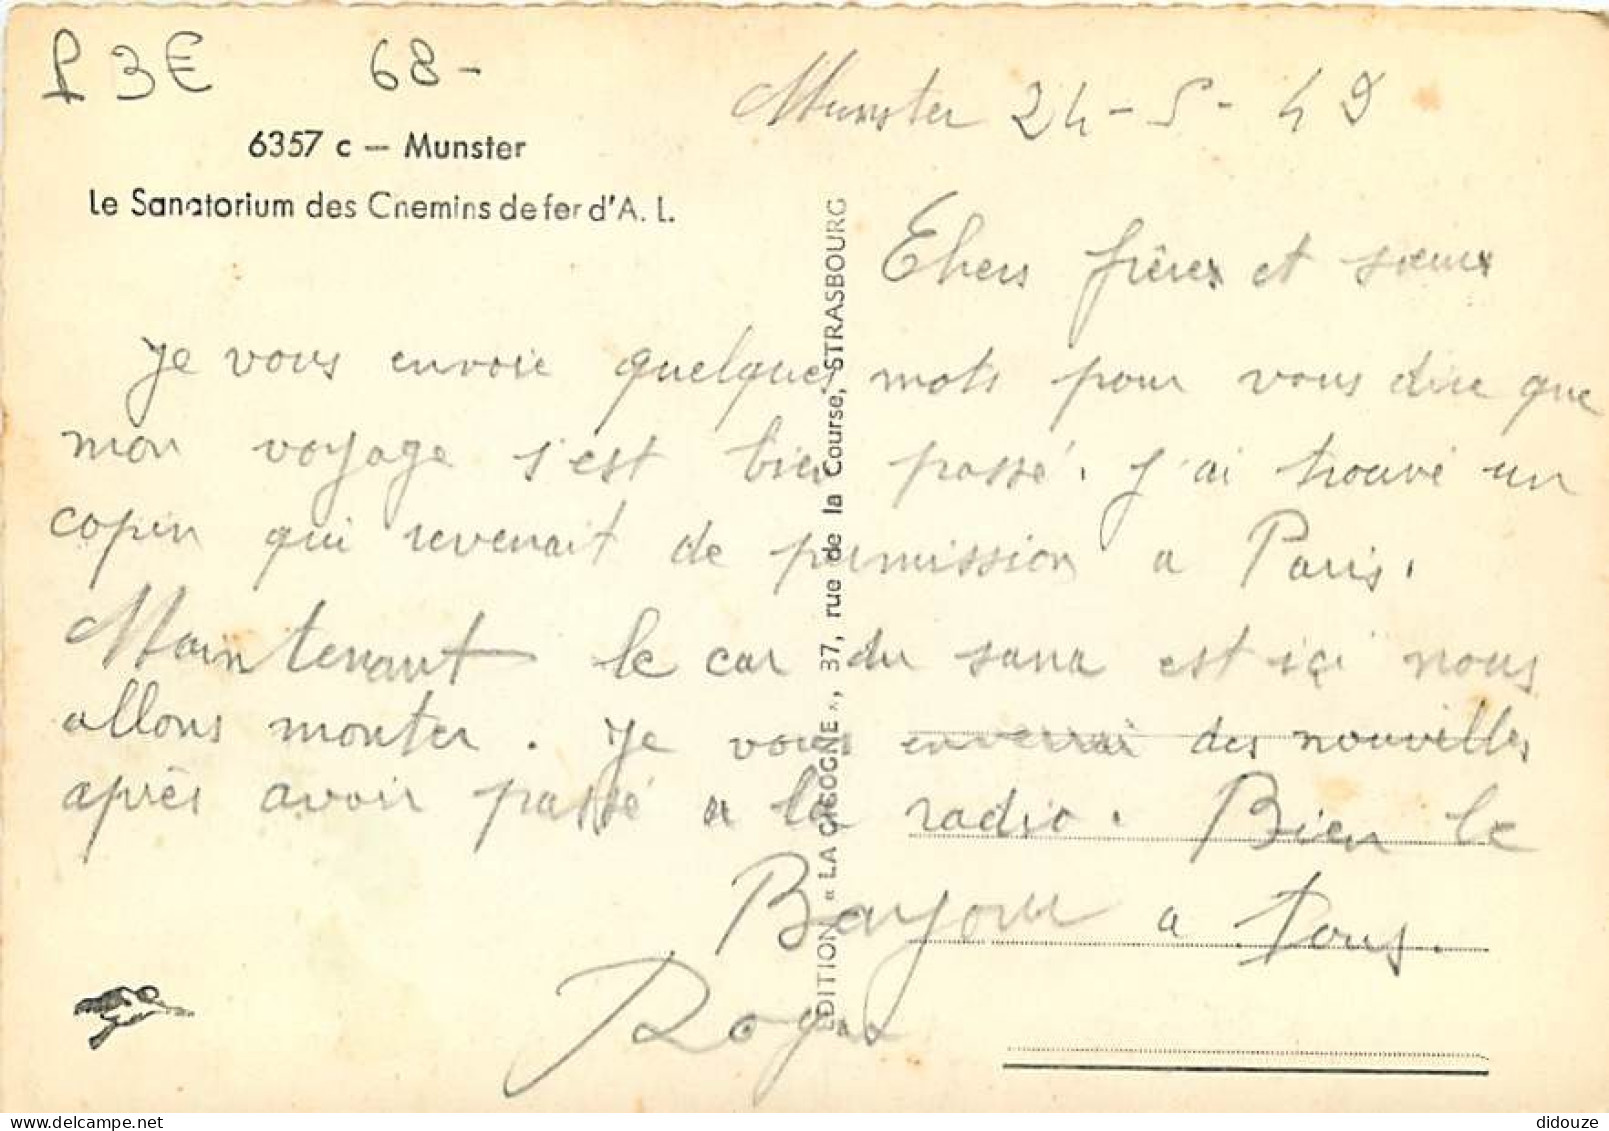 £ 3€ 68-
6357 c — Munster
Le Sanatorium des Chemins de fer d'A. L.
Munster 24-5-49
Chers frères et sœurs
Je vous envoie quelques mots pour vous dire que
mon voyage s'est bien passé. J'ai trouvé un
copin qui revenait de permission a Paris.
Maintenant le car du sana est içi nous
allons monter. Je vous enverrai des nouvelles
après avoir passé a la radio. Bien le
Bonjour a tous.
Roger
EDITION « LA CIGOGNE », 37, rue de la Course, STRASBOURG
didouze